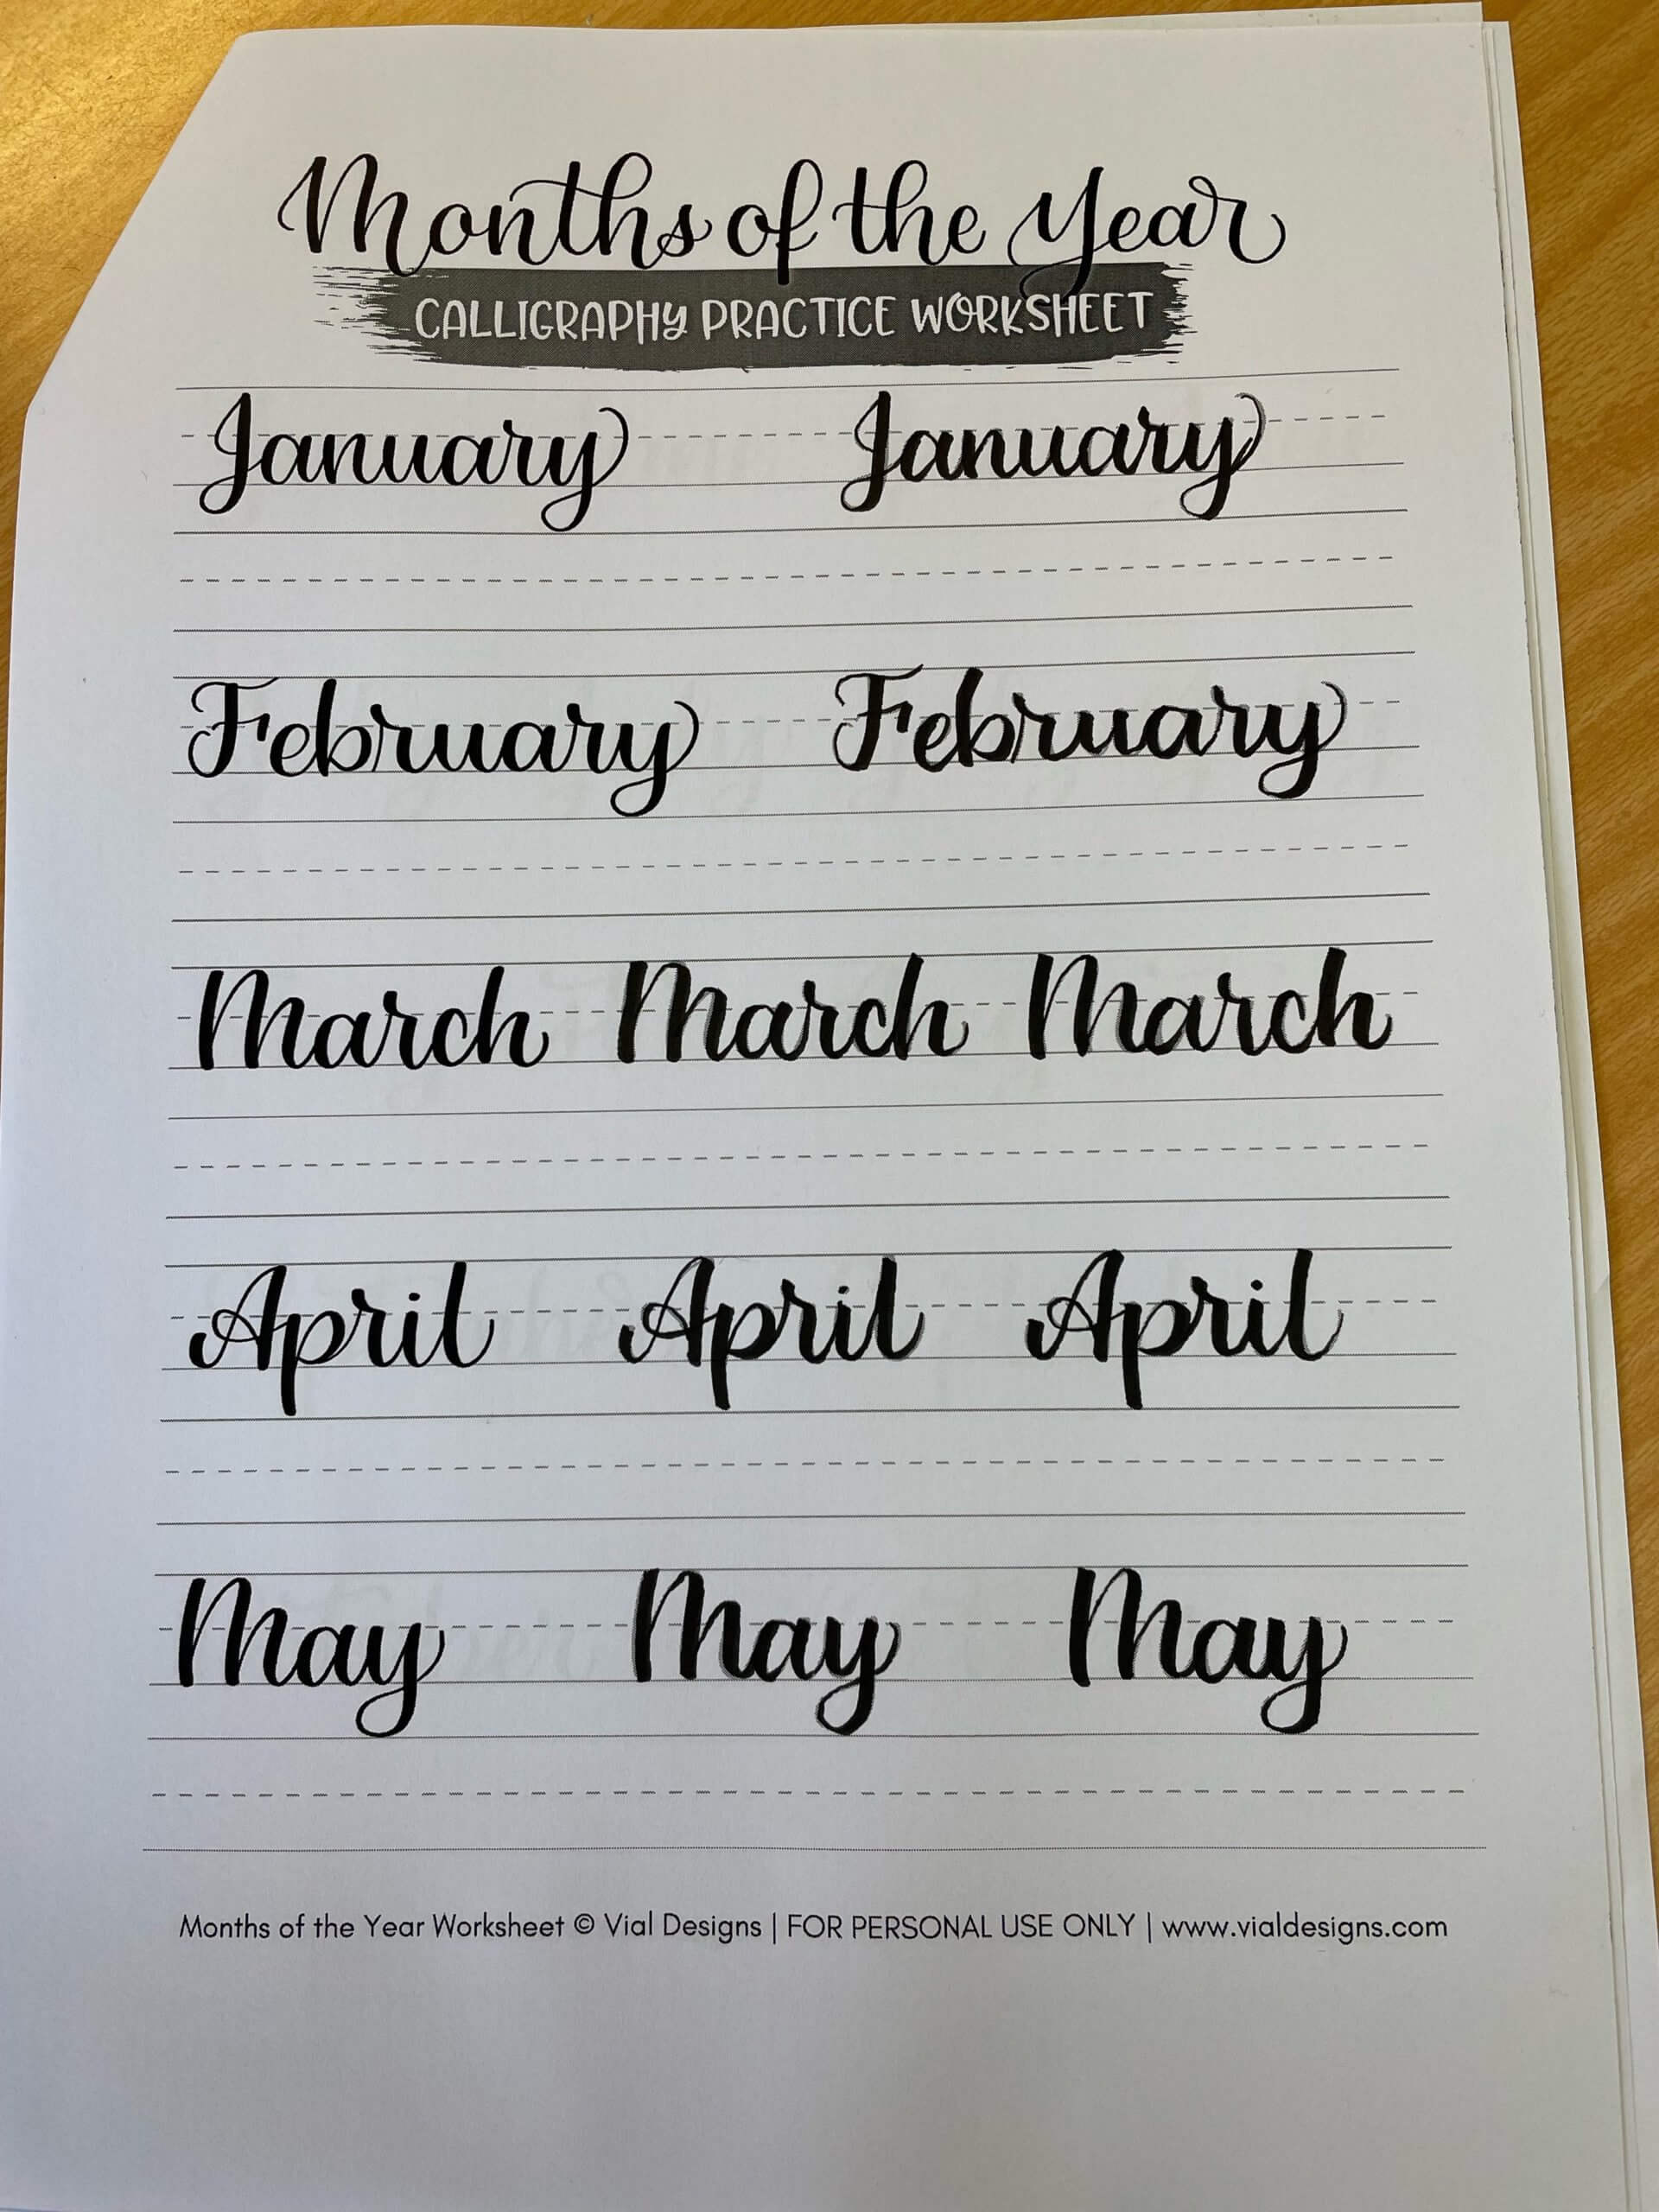 Months of the Year
CALLIGRAPHY PRACTICE WORKSHEET
January January
February February
March March March
April April April
May May May
Months of the Year Worksheet © Vial Designs | FOR PERSONAL USE ONLY | www.vialdesigns.com